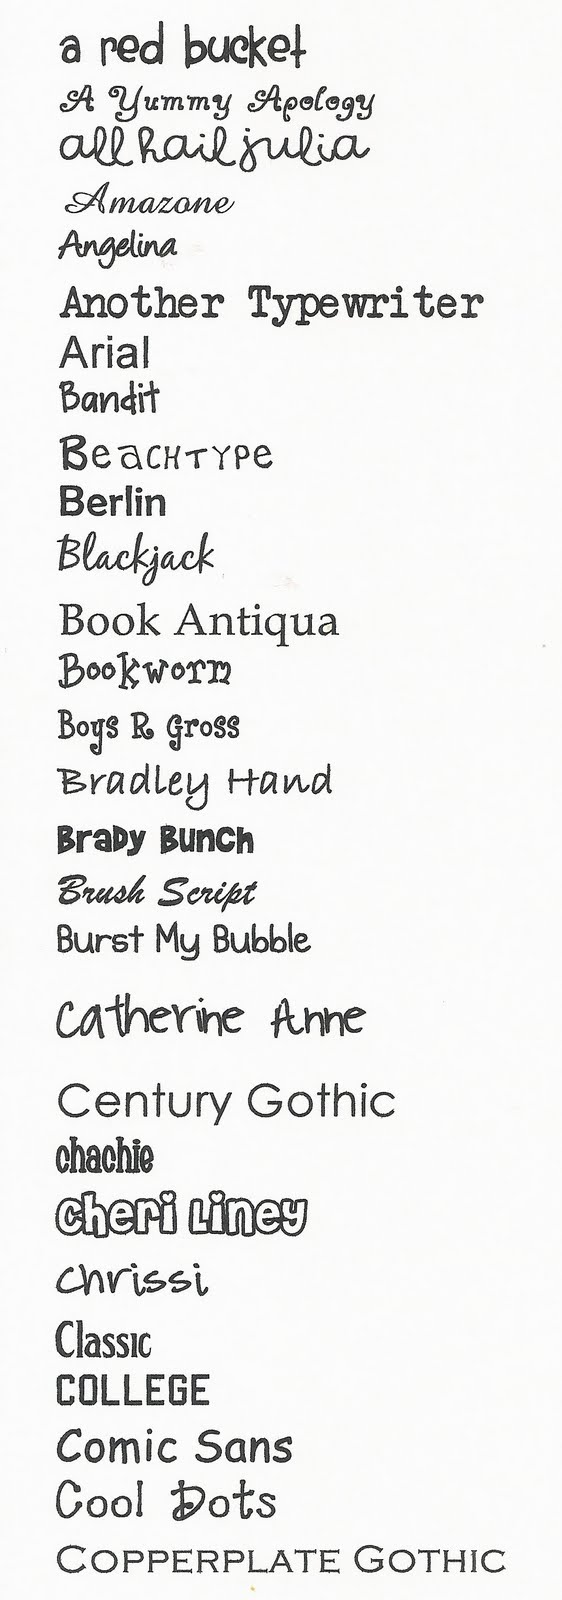 a red bucket
A Yummy Apology
all hail julia
Amazone
Angelina
Another Typewriter
Arial
Bandit
BeachType
Berlin
Blackjack
Book Antiqua
Bookworm
Boys R Gross
Bradley Hand
Brady Bunch
Brush Script
Burst My Bubble
Catherine Anne
Century Gothic
chachie
Cheri Liney
Chrissi
Classic
COLLEGE
Comic Sans
Cool Dots
COPPERPLATE GOTHIC